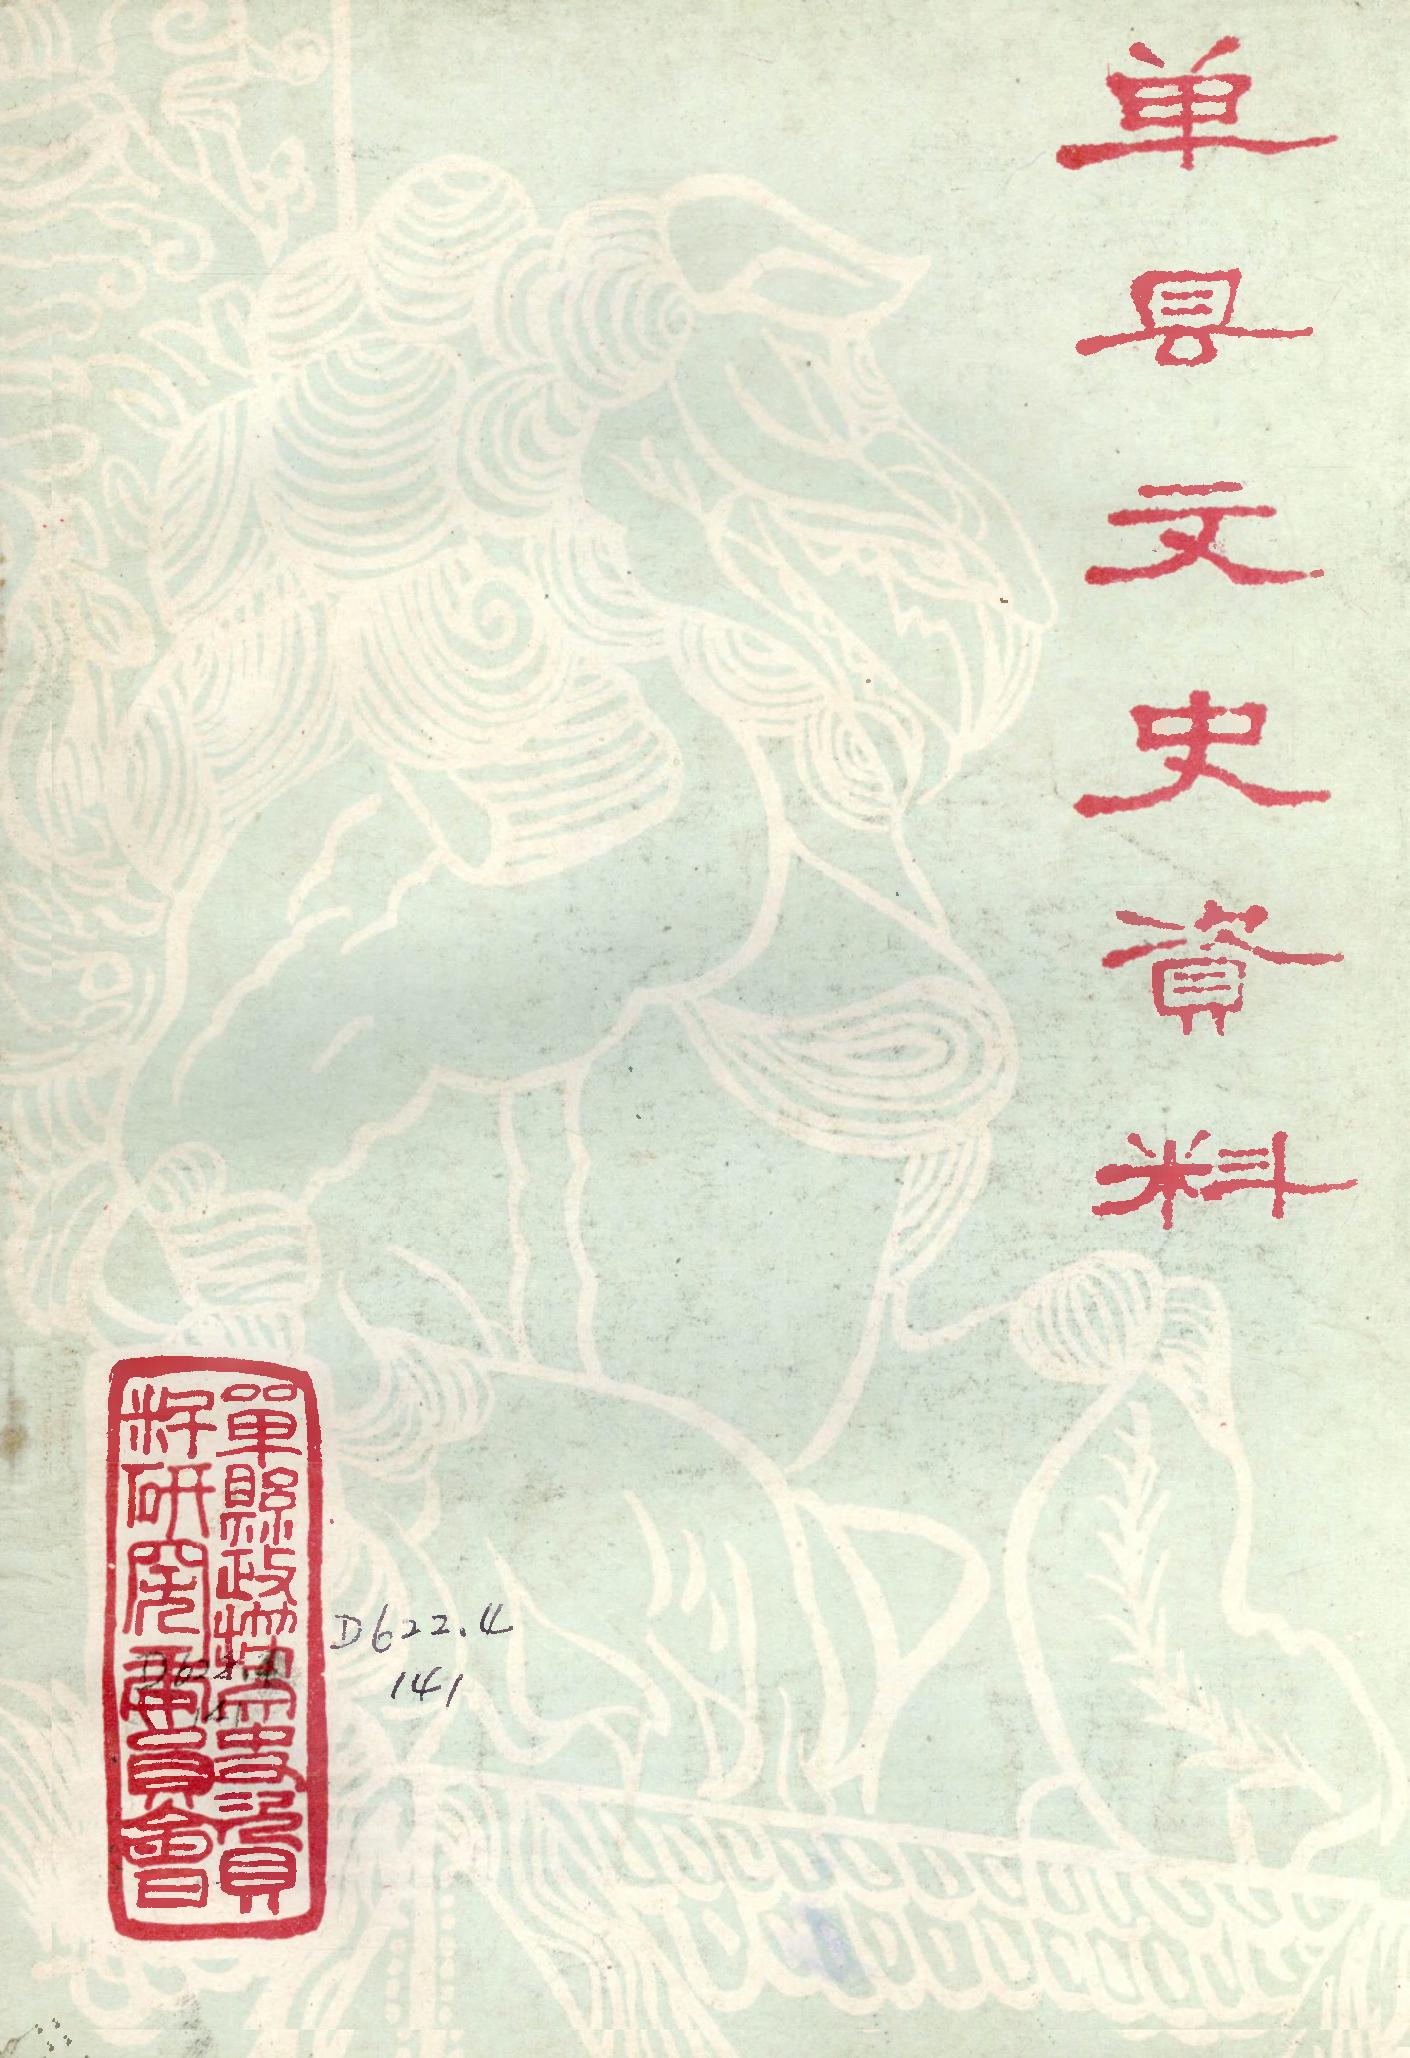 单县文史資料
單縣政協文史資
料研究委員會
D622.4
141